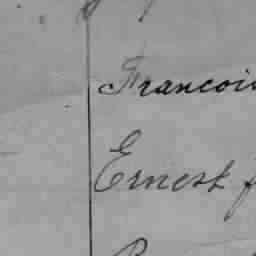 Francois
Ernest f